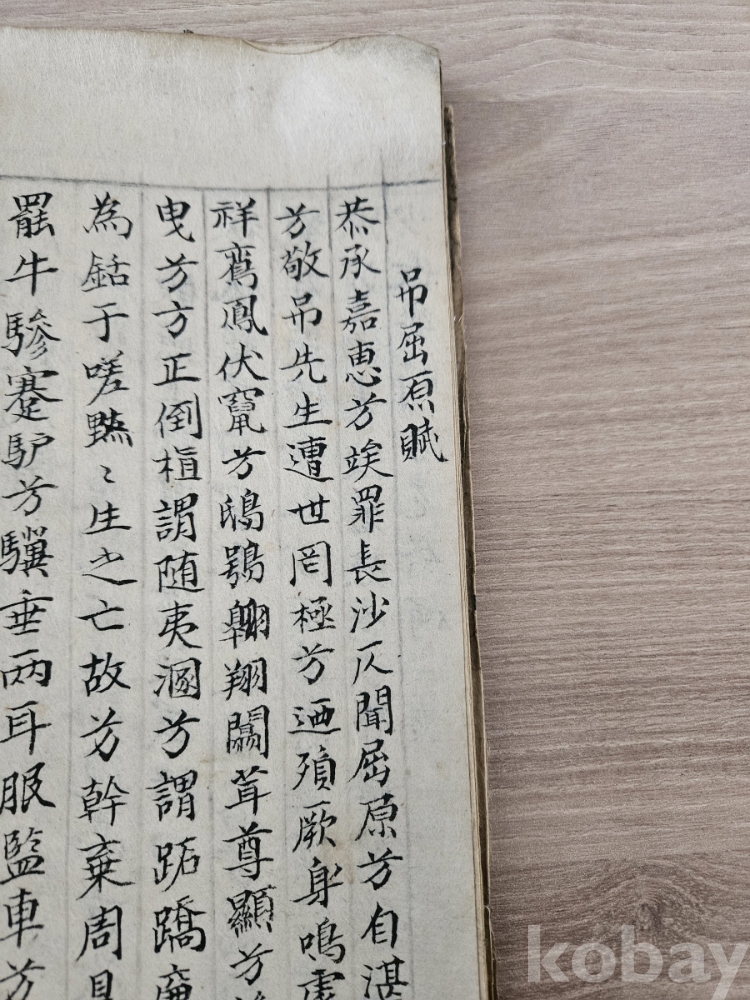 吊屈原賦
恭承嘉惠兮竢罪長沙仄聞屈原兮自湛
兮敬吊先生遭世罔極兮迺殞厥身嗚虖
祥鸞鳳伏竄兮鴟鴞翱翔闒茸尊顯兮
曳兮方正倒植謂随夷溷兮謂跖蹻廉
為銛于嗟黙〻生之亡故兮斡棄周
罷牛驂蹇驴兮驥垂兩耳服盬車兮
kobay